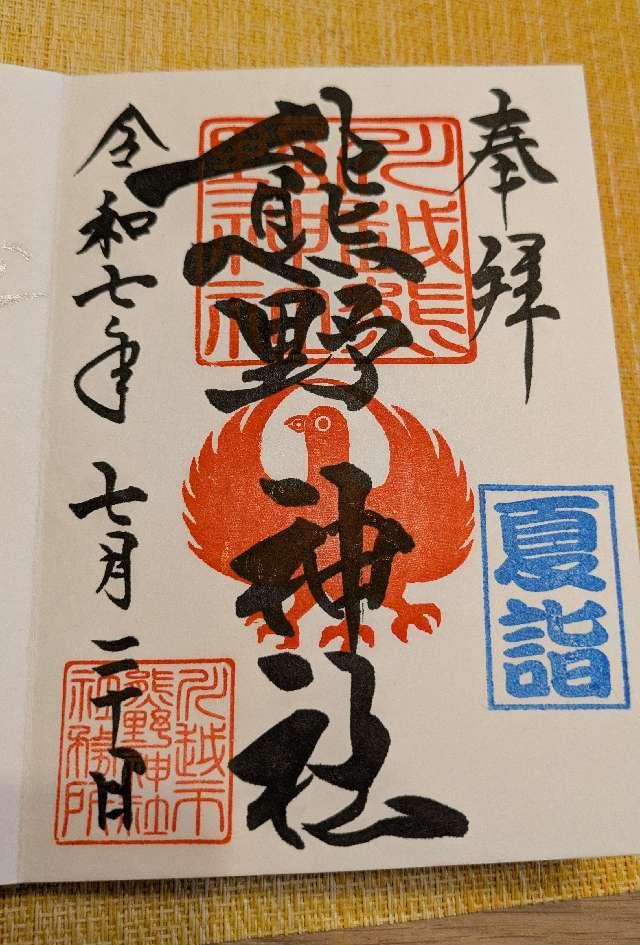 奉拝
夏詣
川越熊
野神社
熊野神社
令和七年 七月二十日
川越市
熊野神社
社務所